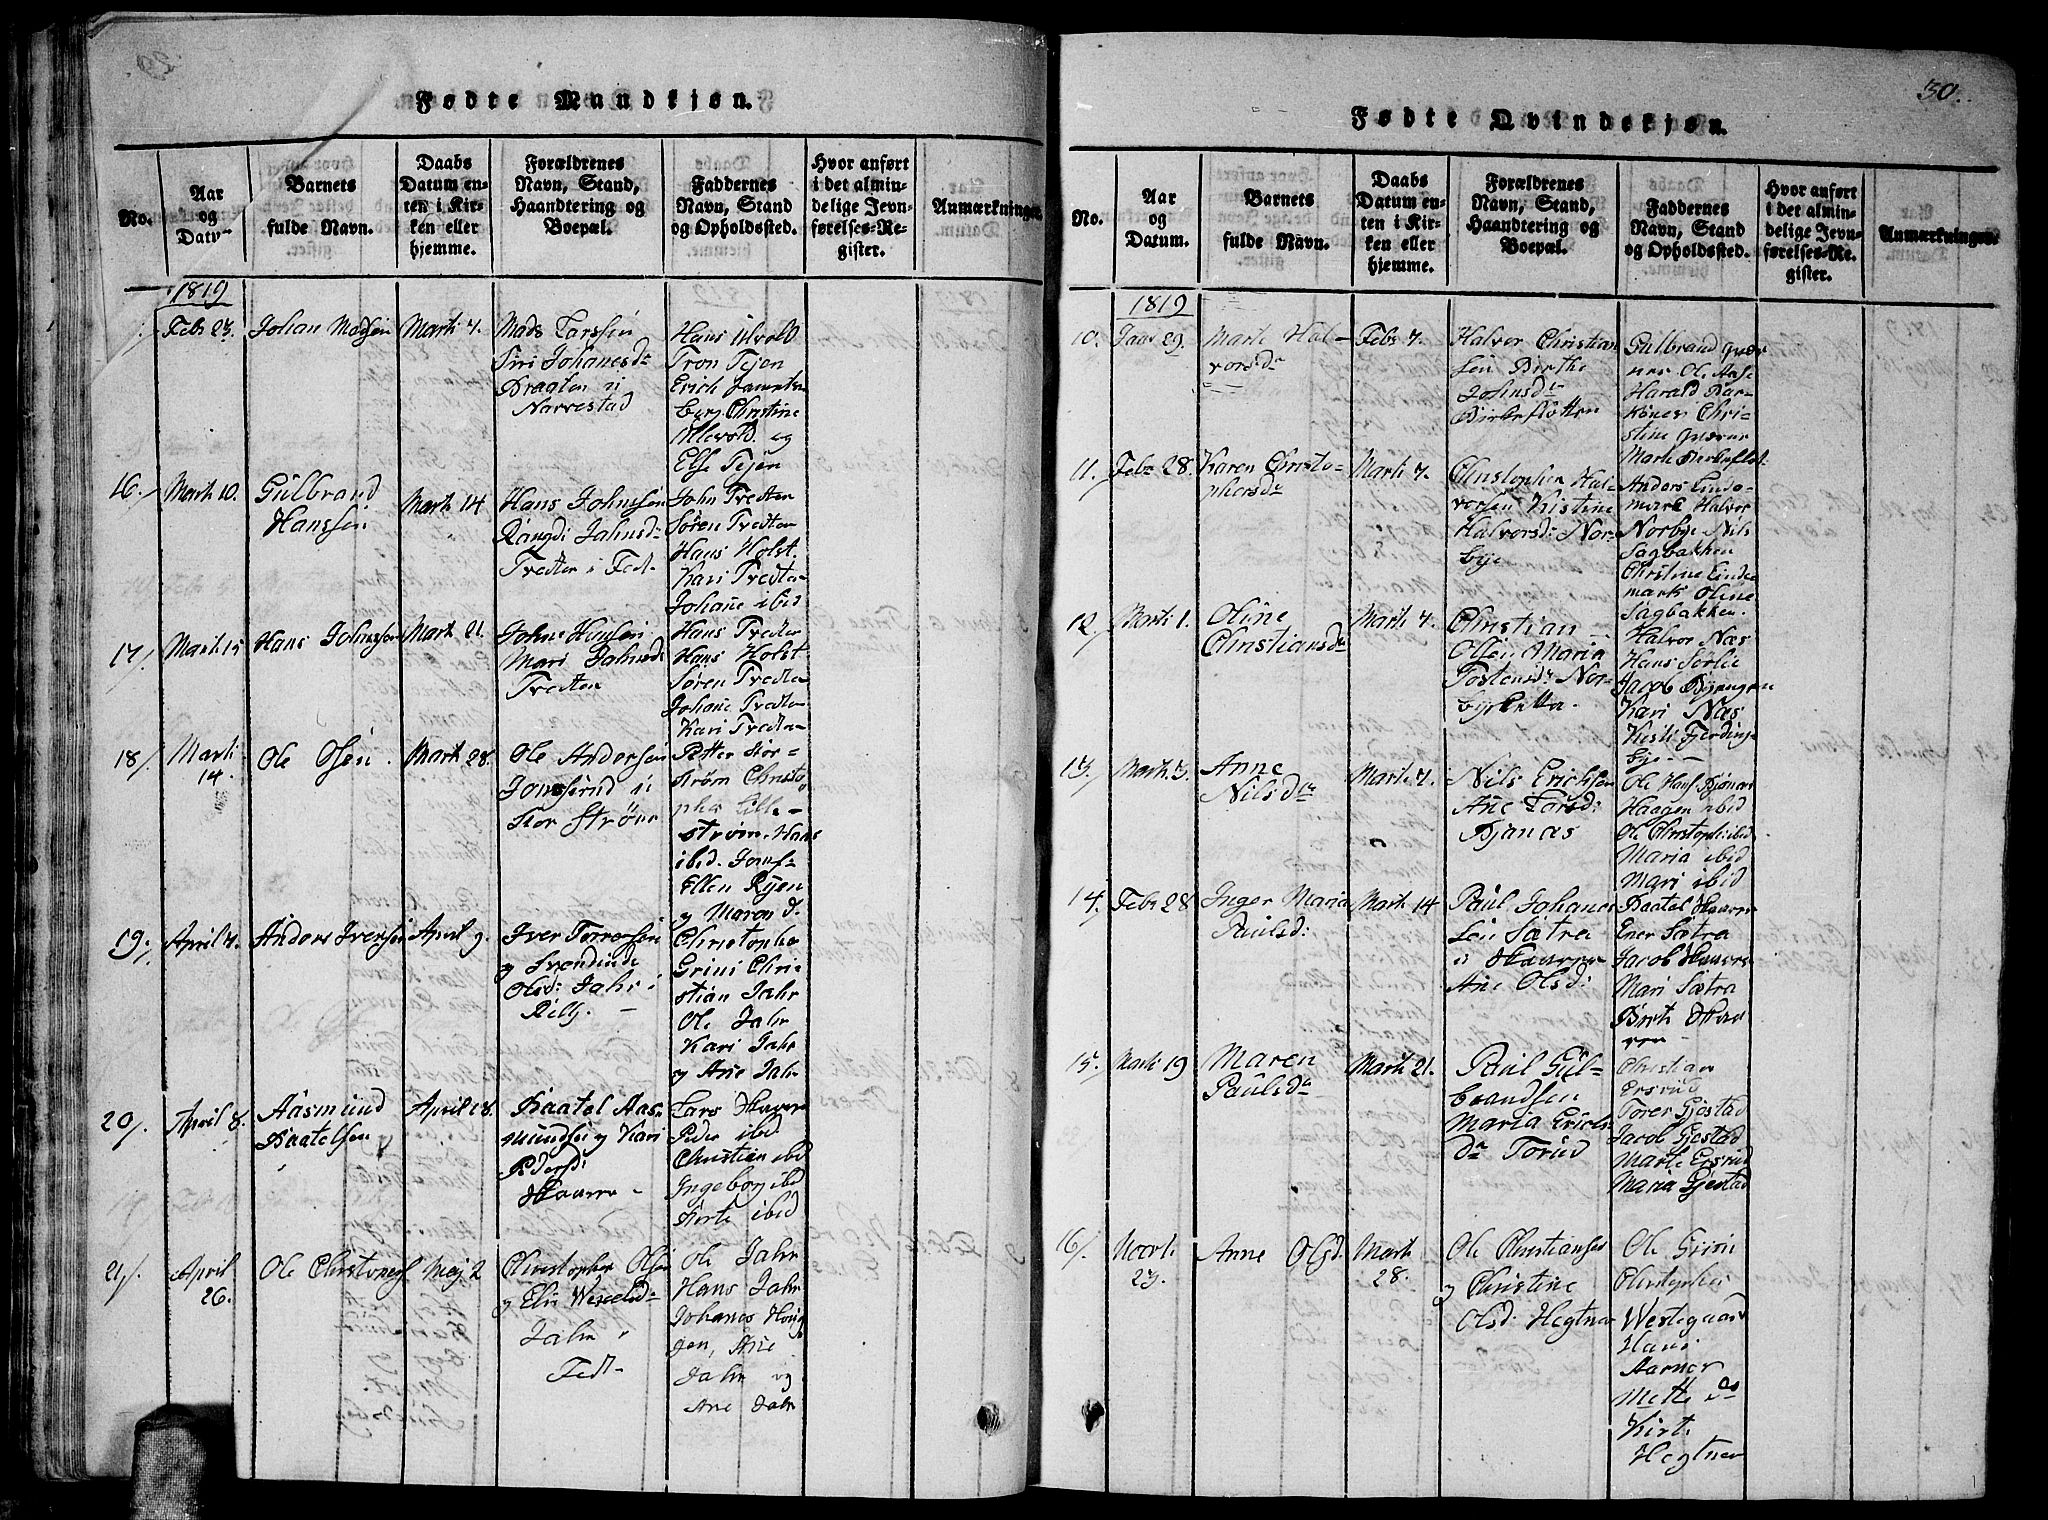 Fødte Mandkjøn.
No.
Aar
og
Datum
Barnets
fulde Navn.
Daabs
Datum en-
ten i Kir-
ken eller
hjemme.
Forældrenes
Navn, Stand,
Haandtering og
Boepæl.
Faddernes
Navn, Stand
og Opholdssted.
Hvor anført
i det almin-
delige Jevn-
førelses-Re-
gister.
Anmærkninger.
1819
Febr 23.
Johan Madsen
Marti 7.
Mads Larssen
Siri Johanesdr
Kragten i
Narvestad
Hans Ulvold
Tron Tejen
Erich
berg Christine
Ullevold og
Else Tejen
16.
Marti 10.
Gulbrand
Hanssen
Marti 14
Hans Johnsen
Rangdi Johnsd:
Tvedten i Fed-
John Tvedten
Søren Tvedten
Hans Holst
Kari Tvedten
Johane ibid
17.
Marti 15
Hans Johnsen
Marti 21.
John Hansen
Mari Johnsd:
Tvedten
Hans Tvedten
Hans Holst
Søren Tvedten
Johane Tvedten
Kari Tvedten
18.
Marti
14.
Ole Olsen
Marti 28.
Ole Andersen
Jonserud i
Stor Strøm
Petter Stor-
strøm Christo
pher Lille-
strøm. Hans
ibid. Jons-
Ellen Ryen
og Maren d.
19.
April 4.
Anders Iversen
April 9.
Iver Torersen
og
Olsd: Jahr i
Christopher
Grini Chri-
stian Jahr
Ole Jahr
Kari Jahr
og Ane Jahr
20.
April 8.
Aasmund
Baatelsen
April 18.
Baatel Aas-
mundsen og Kari
Pedersd:
Skaarer
Lars Skaarer
Peder ibid
Christian ibid
Ingeborg ibid
Berte ibid
21.
April
26.
Ole Christophers
Mej 2
Christopher Olsen
og Elie Wexelsdr
Jahr
Fed-
Ole Jahr
Hans Jahr
Johanes Houg
gen, Ane
Jahr og
Ane Jahr
30.
Fødte Qvindekjøn.
No.
Aar
og
Datum.
Barnets
fulde Navn.
Daabs
Datum en-
ten i Kir-
ken eller
hjemme.
Forældrenes
Navn, Stand,
Haandtering og
Boepæl.
Faddernes
Navn, Stand
og Opholdssted.
Hvor anført
i det almin-
delige Jevn-
førelses-Re-
gister.
Anmærkninger.
1819
10.
Janr 29.
Marte Hal-
vorsdr
Febr 7.
Halvor Christian
sen Birthe
Johnsdr
Birkeslotten
Gulbrand Qvær
ner Ole Aase
Harald
Chri-
stine Qværner
Marte
11.
Febr 28.
Karen Christo-
phersdr
Marti 7.
Christopher Hal-
vorsen Kistine
Halvorsd: Nor-
bye
Anders Linde-
mark Halvor
Norbye Nils
Sagbakken
Christine Linde
mark Oline
Sagbakken.
12.
Marti 1.
Oline
Christiansdr
Marti 7.
Christian
Olsen Maria
Tostensd: Nor-
Halvor Næs
Hans Sørlie
Jacob
Kari Næs
Kisti Fjerding-
bye
13.
Marti 3.
Anne
Nilsdr
Marti 7.
Nils Erichsen
Ane Larsd:
Bjønæs
Ole Hans Bjønæs
Haagen ibid
Ole Christoph: ibid
Maria ibid
Mari ibid
14.
Febr 28
Inger Maria
Paulsd:
Marti 14
Paul Johanes
sen Sætra
i Skaarer
Ane Olsd:
Baatel Skaarer
Ener Sætra
Jacob Skaarer
Mari Sætra
Berte Skaa
rer
15.
Marti 19
Maren
Paulsdr
Marti 21.
Paul Gul-
brandsen
Maria Erichs
dr Torud
Christian
Ersrud
Torer Gjestad
Jacob Gjestad
Marte Ersrud
Maria Gjestad
16.
Marti
23.
Anne Olsd.
Marti
28.
Ole Christiansen
og Christine
Olsd: Hegtner
Ole Grini
Christopher
Westegaard
Hans
Aarnes
Mette ds
Kirt.
Hegtner